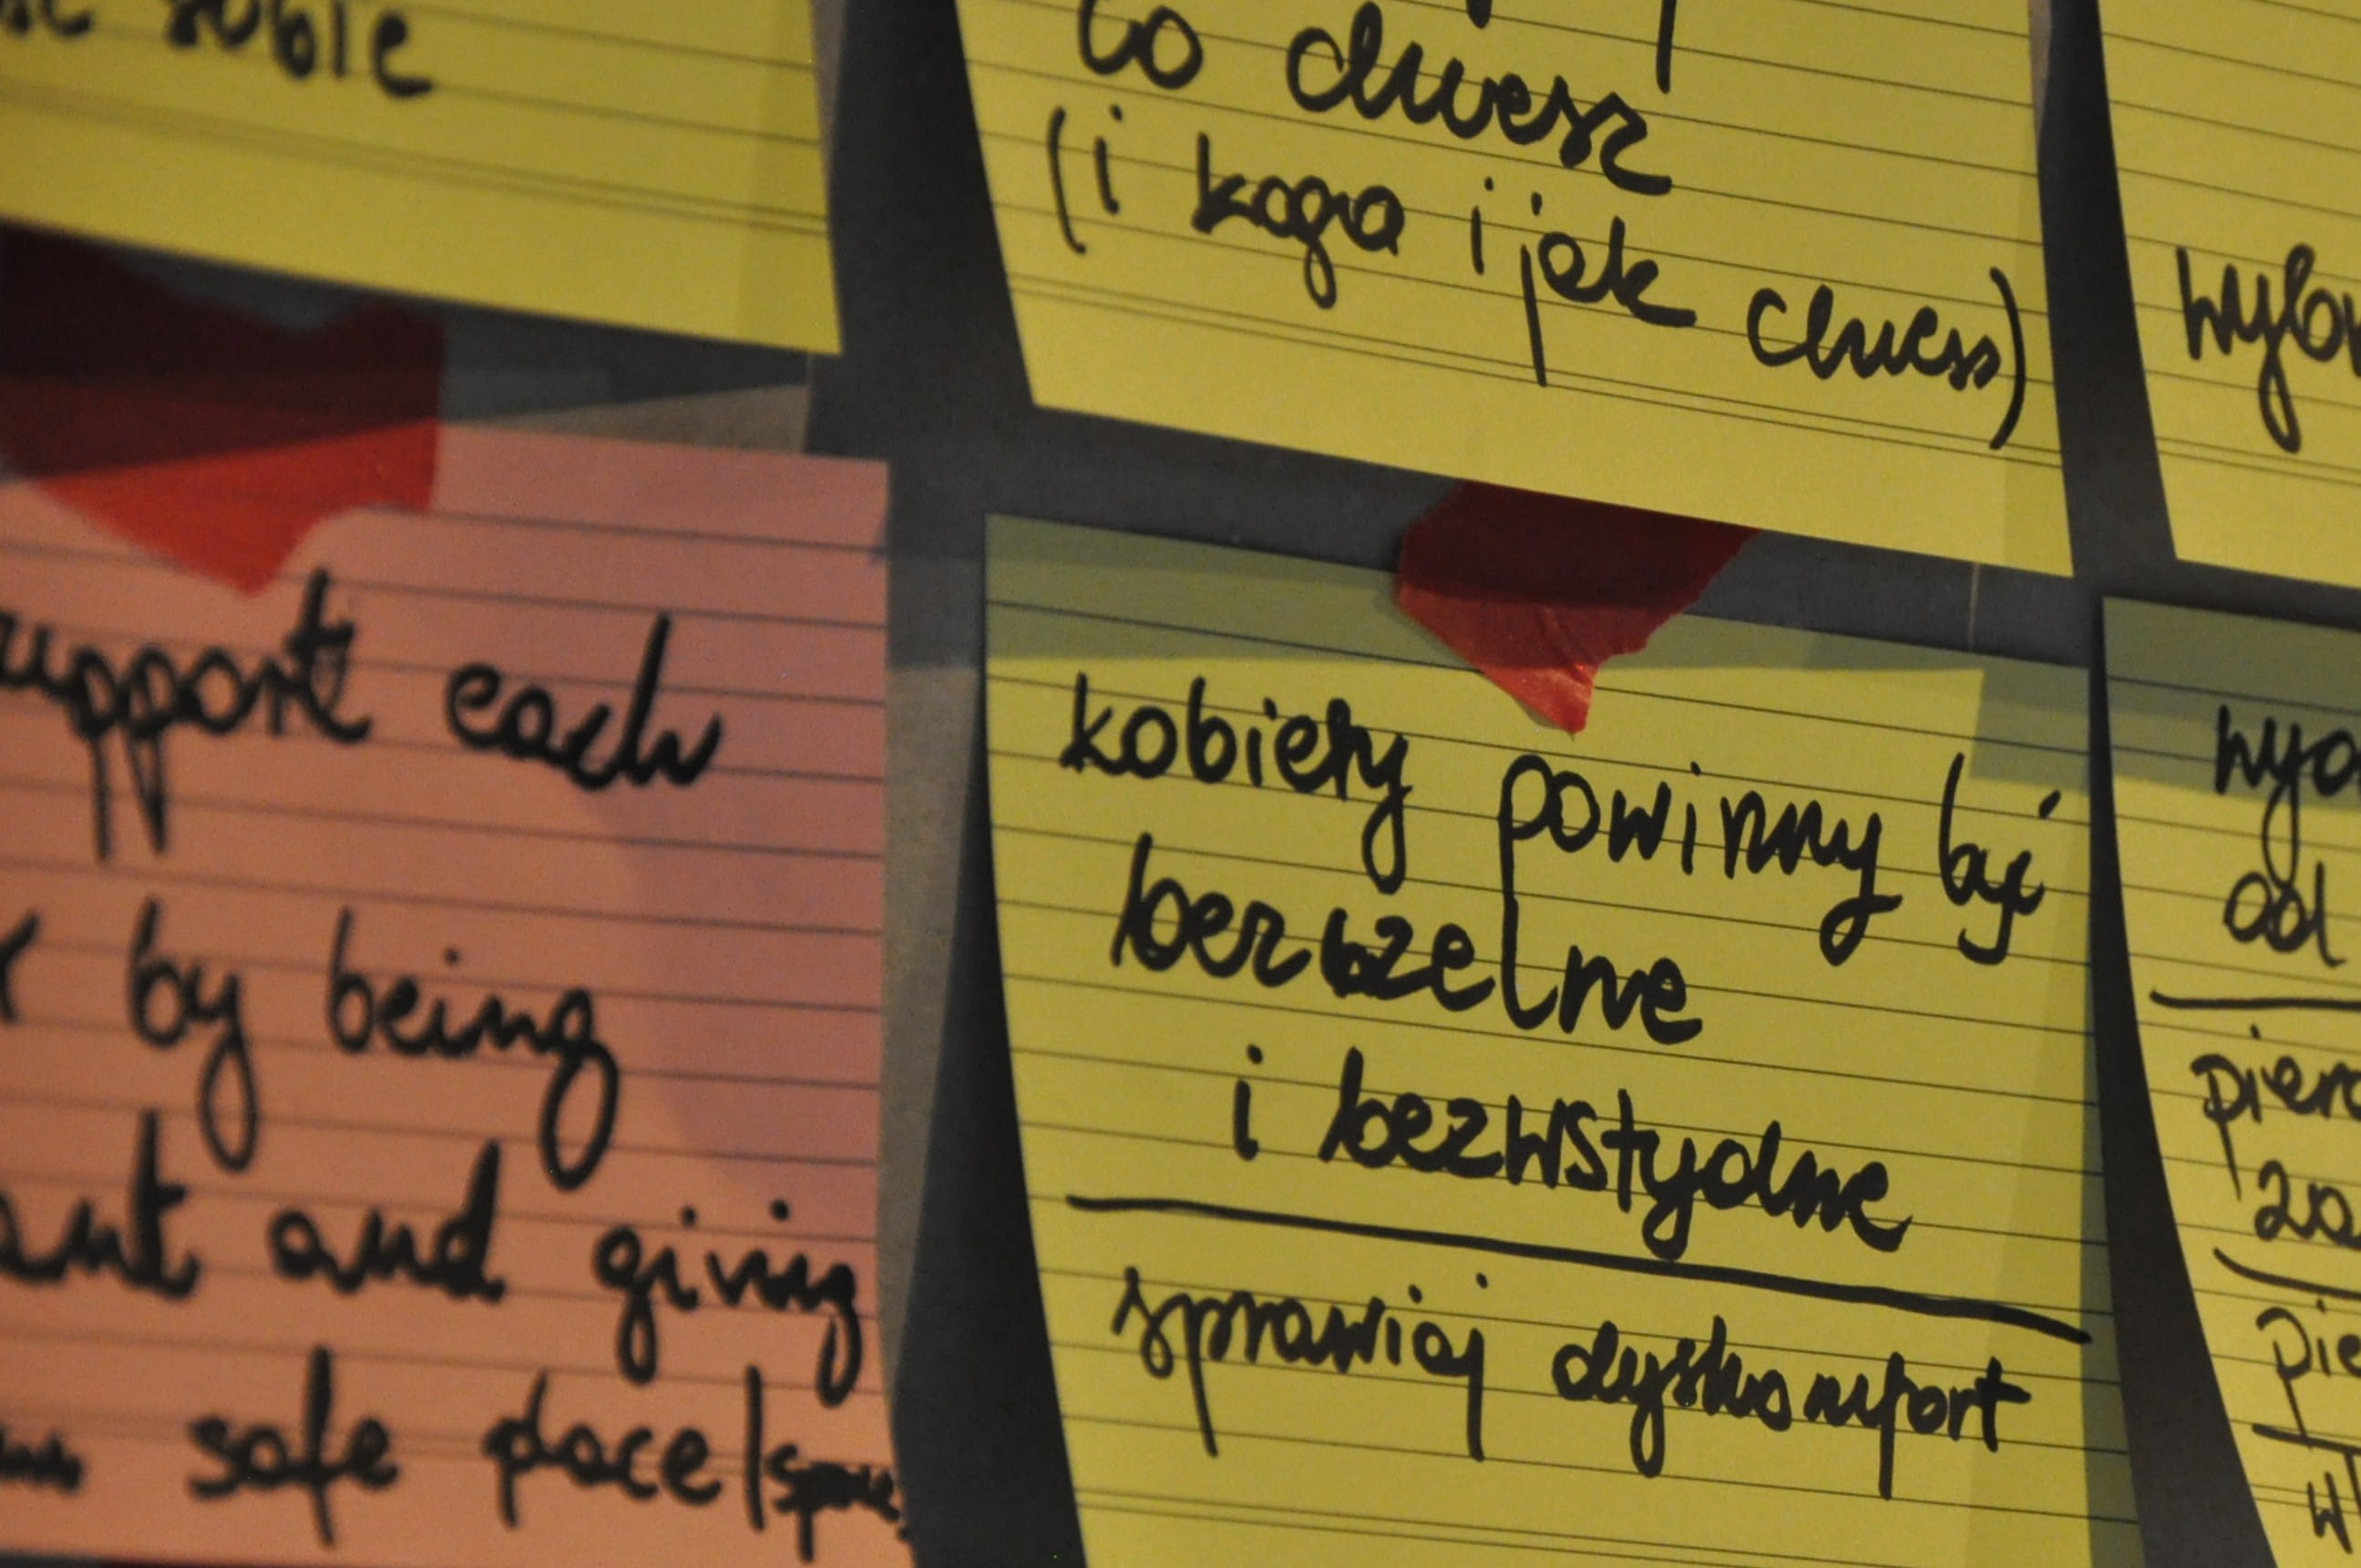 sobie
co chcesz
(i kogo i jak chcesz)
support each
by being
and giving
safe place/space
kobiety powinny być
bezczelne
i bezwstydne
sprawiaj dyskomfort
od